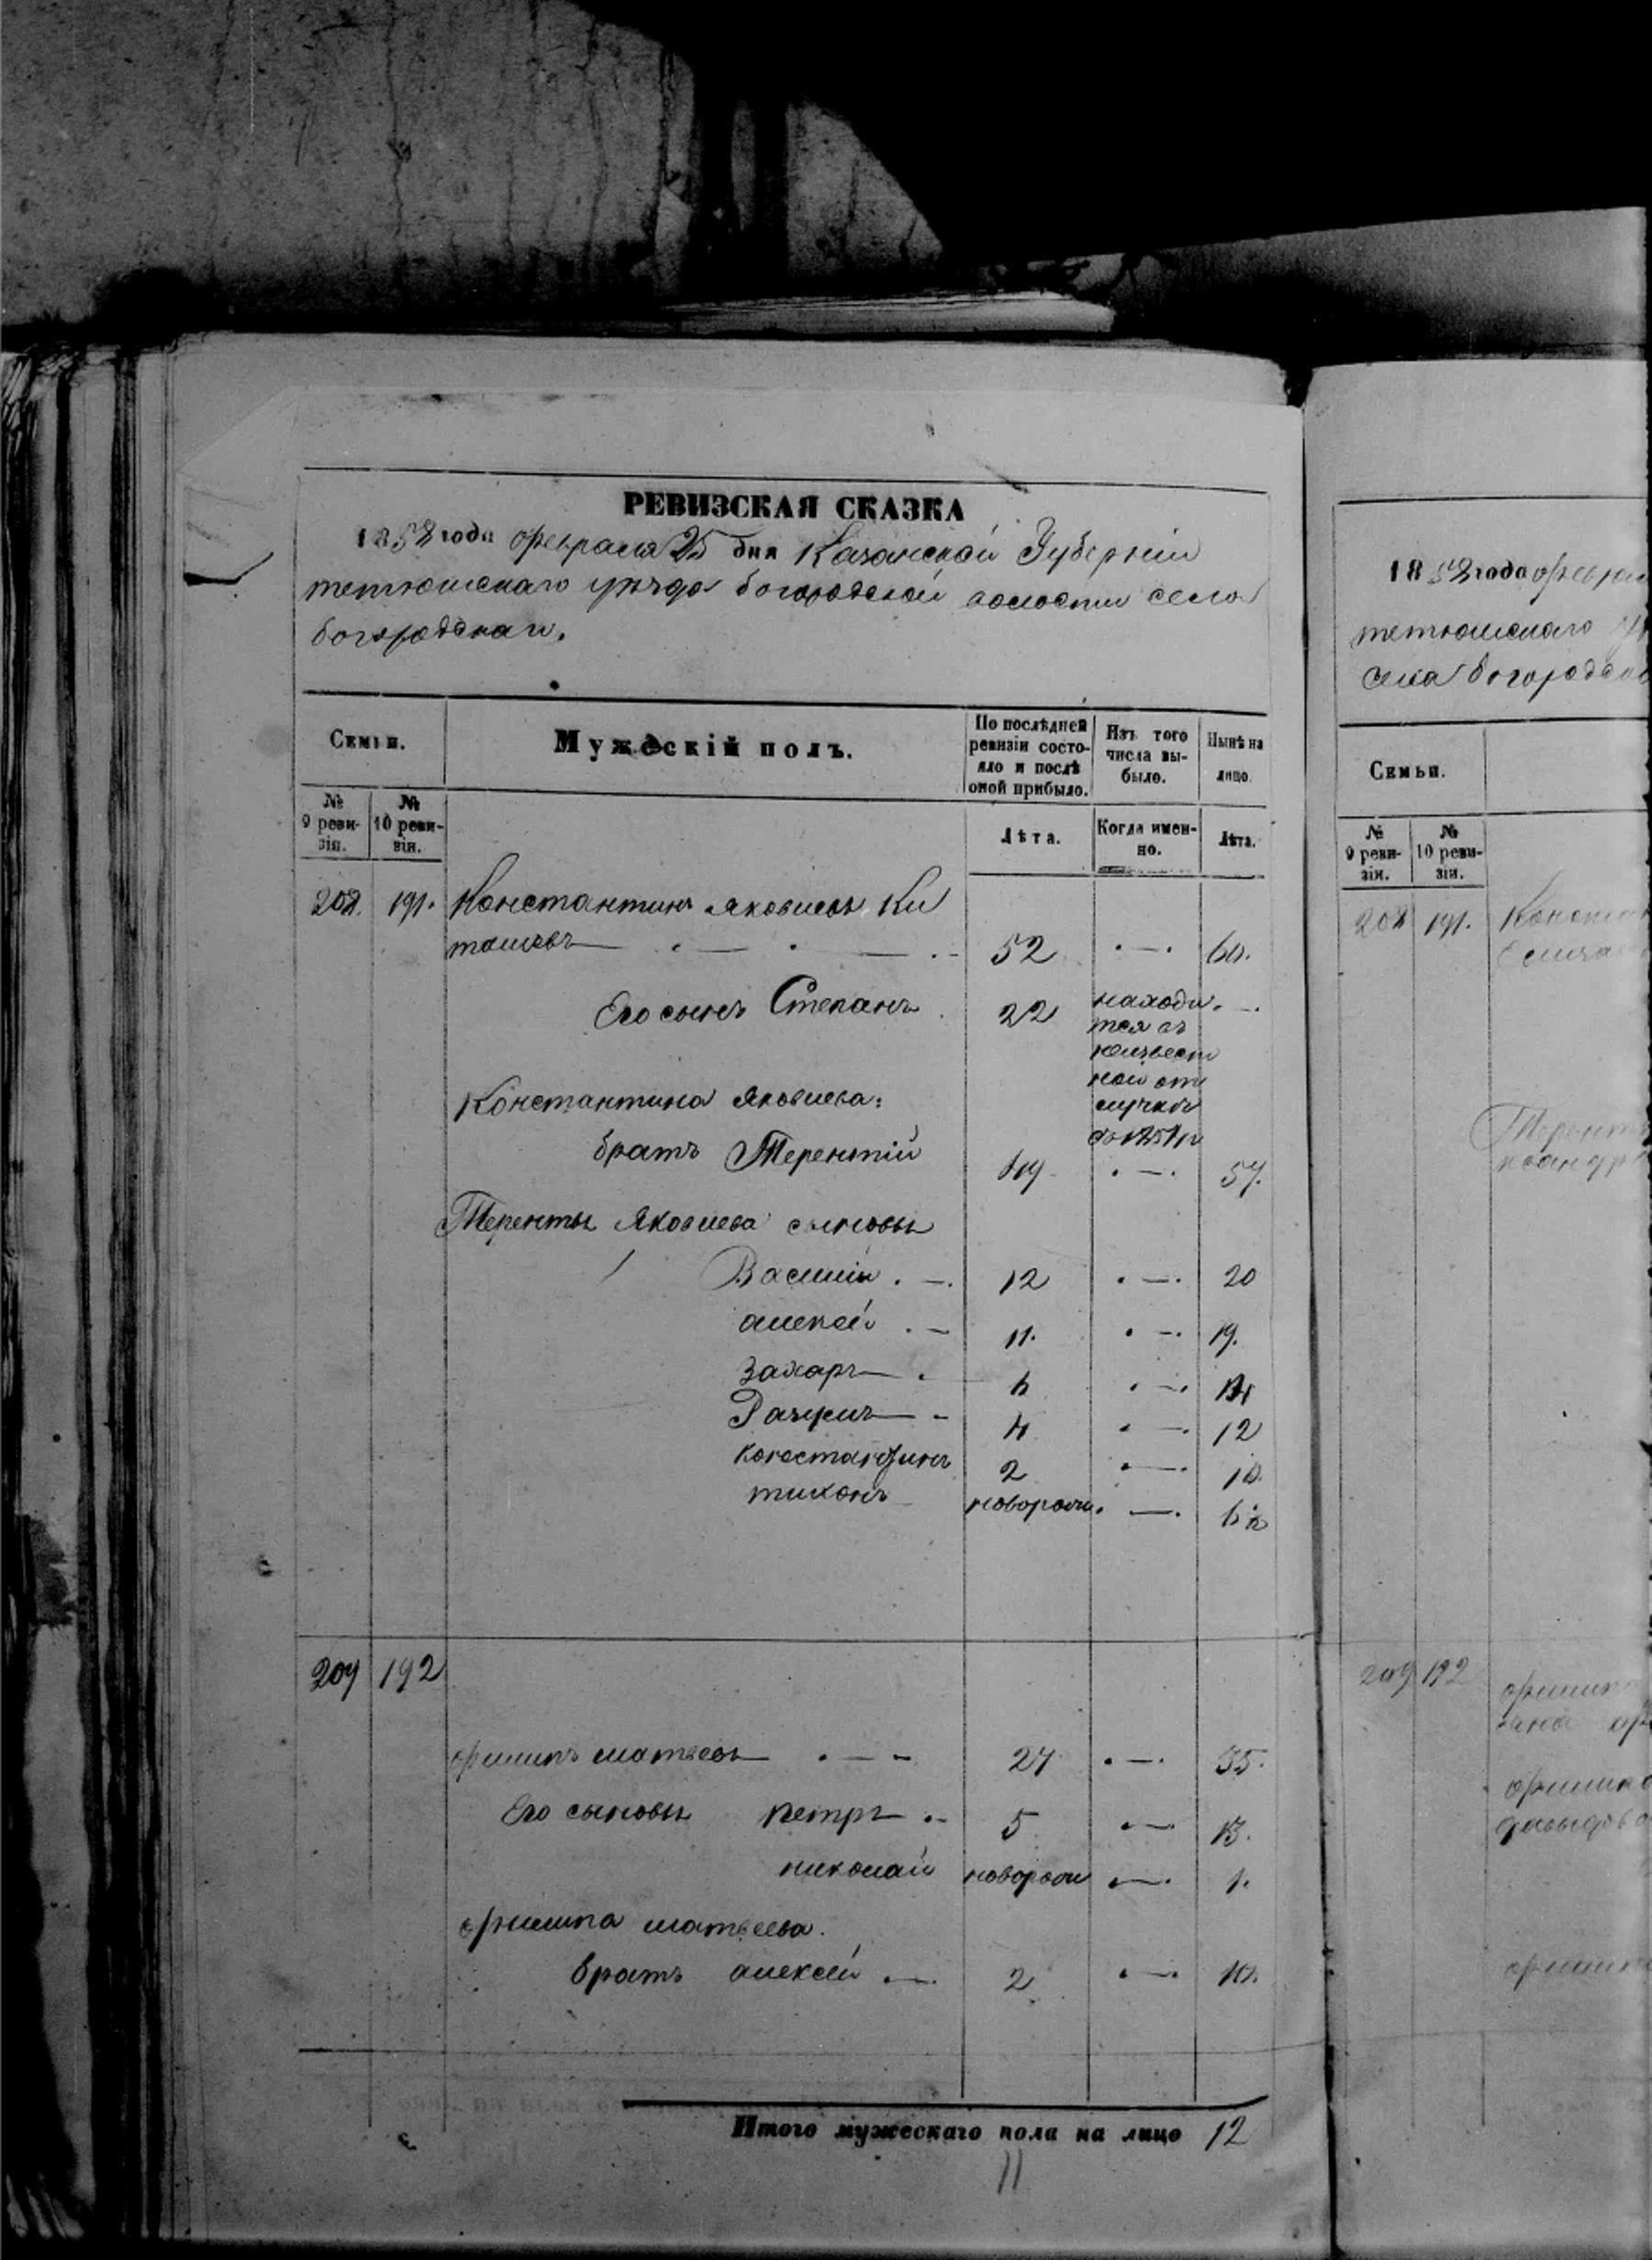 РЕВИЗСКАЯ СКАЗКА
1858 года февраля 25 дня Казанской Губерніи
тетюшскаго уѣзда богородской волости села
богородскаго.
Семьи.
Мужескій полъ.
По послѣдней ревизіи состояло и послѣ оной прибыло.
Изъ того числа выбыло.
Нынѣ на лицо.
№ 9 ревизіи.
№ 10 ревизіи.
Лѣта.
Когда именно.
Лѣта.
208. 191. Константинъ яковлевъ Ки
ташевъ 52 60.
Его сынъ Степанъ 22 находи
тся въ
неизвест
ной от
лучкѣ
съ 1851 г
Константина Яковлева:
братъ Терентій 49 57.
Терентья Яковлева сыновья
Василій 12 20
алексей 11. 19.
Захаръ 6 14
4 12
константинъ 2 10.
тихонъ новорожд. 6
209 192
филипъ матвеевъ 27 35.
Его сыновья петръ 5 13.
николай новорож 1.
филипа матвеева.
братъ алексей 2 10.
Итого мужескаго пола на лицо 12
11
1858 года феврал
тетюшскаго
села богородско
Семьи.
№ 9 ревизіи.
№ 10 ревизіи.
208 191.
209 192